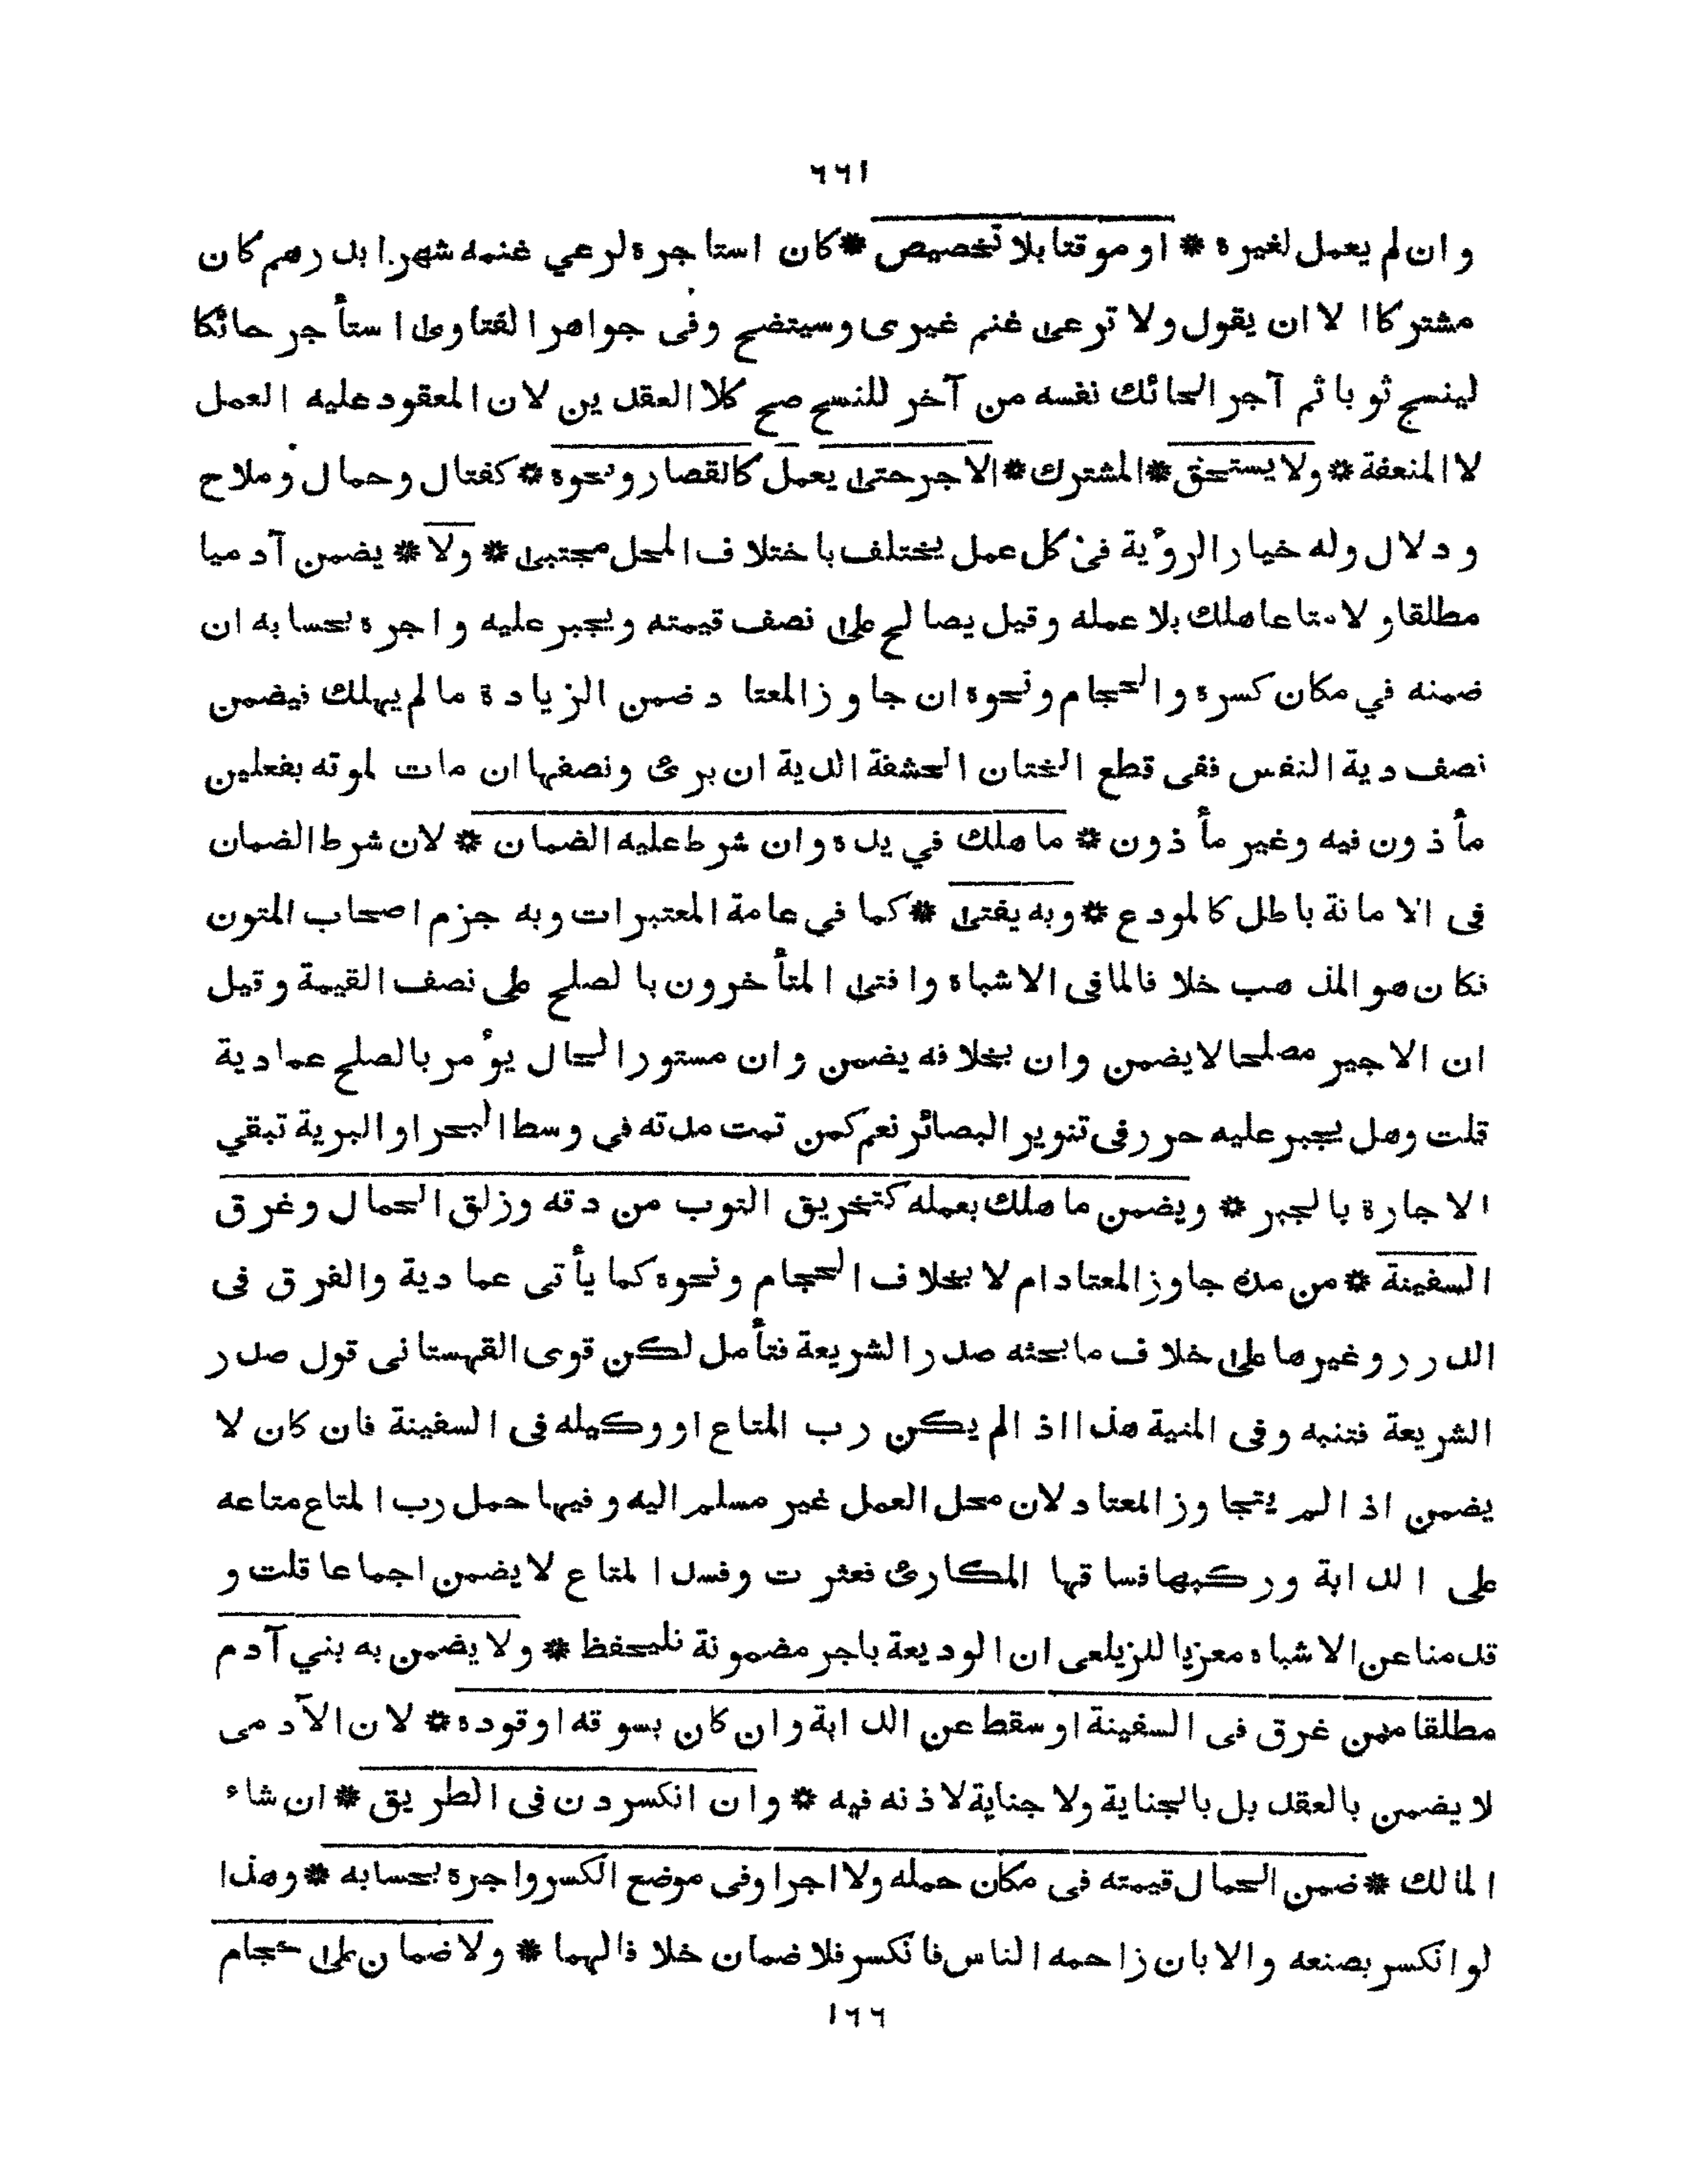 ٦٦١
وان لم يعمل لغيره * او موقتا بلا تخصيص * كان استاجره لرعي غنمه شهرا بدرهم كان
مشتركا الا ان يقول ولا ترعى غنم غيرى وسيتضح وفى جواهر الفتاوى استأجر حائكا
لينسج ثوبا ثم آجر الحائك نفسه من آخر للنسج صح كلا العقدين لان المعقود عليه العمل
لا المنفعة * ولا يستحق * المشترك * الاجر حتى يعمل كالقصار ونحوه * كفتال وحمال وملاح
ودلال وله خيار الرؤية فى كل عمل يختلف باختلاف المحل مجتبى * ولا * يضمن آدميا
مطلقا ولا متاعا هلك بلا عمله وقيل يصالح على نصف قيمته ويجبر عليه واجره بحسابه ان
ضمنه في مكان كسره والحجام ونحوه ان جاوز المعتاد ضمن الزيادة ما لم يهلك فيضمن
نصف دية النفس ففى قطع الختان الحشفة الدية ان برئ ونصفها ان مات لموته بفعلين
مأذون فيه وغير مأذون * ما هلك في يده وان شرط عليه الضمان * لان شرط الضمان
فى الامانة باطل كالمودع * وبه يفتى * كما في عامة المعتبرات وبه جزم اصحاب المتون
فكان هو المذهب خلافا لما فى الاشباه وافتى المتأخرون بالصلح على نصف القيمة وقيل
ان الاجير مصلحا لا يضمن وان بخلافه يضمن وان مستور الحال يؤمر بالصلح عمادية
قلت وهل يجبر عليه حرر فى تنوير البصائر نعم كمن تمت مدته في وسط البحر او البرية تبقي
الاجارة بالجبر * ويضمن ما هلك بعمله كتخريق الثوب من دقه وزلق الحمال وغرق
السفينة * من مده جاوز المعتاد ام لا بخلاف الحجام ونحوه كما يأتى عمادية والفرق فى
الدرر وغيرها على خلاف ما بحثه صدر الشريعة فتأمل لكن قوى القهستانى قول صدر
الشريعة فتنبه وفى المنية هذا اذا لم يكن رب المتاع او وكيله فى السفينة فان كان لا
يضمن اذا لم يتجاوز المعتاد لان محل العمل غير مسلم اليه وفيها حمل رب المتاع متاعه
على الدابة وركبها فساقها المكارى فعثرت وفسد المتاع لا يضمن اجماعا قلت و
قدمنا عن الاشباه معزيا للزيلعى ان الوديعة باجر مضمونة فليحفظ * ولا يضمن به بني آدم
مطلقا ممن غرق فى السفينة او سقط عن الدابة وان كان بسوقه او قوده * لان الآدمى
لا يضمن بالعقد بل بالجناية ولا جناية لاذنه فيه * وان انكسر دن فى الطريق * ان شاء
المالك * ضمن الحمال قيمته فى مكان حمله ولا اجر او فى موضع الكسر واجره بحسابه * وهذا
لو انكسر بصنعه والا بان زاحمه الناس فانكسر فلا ضمان خلافا لهما * ولا ضمان على حجام
١٦٦